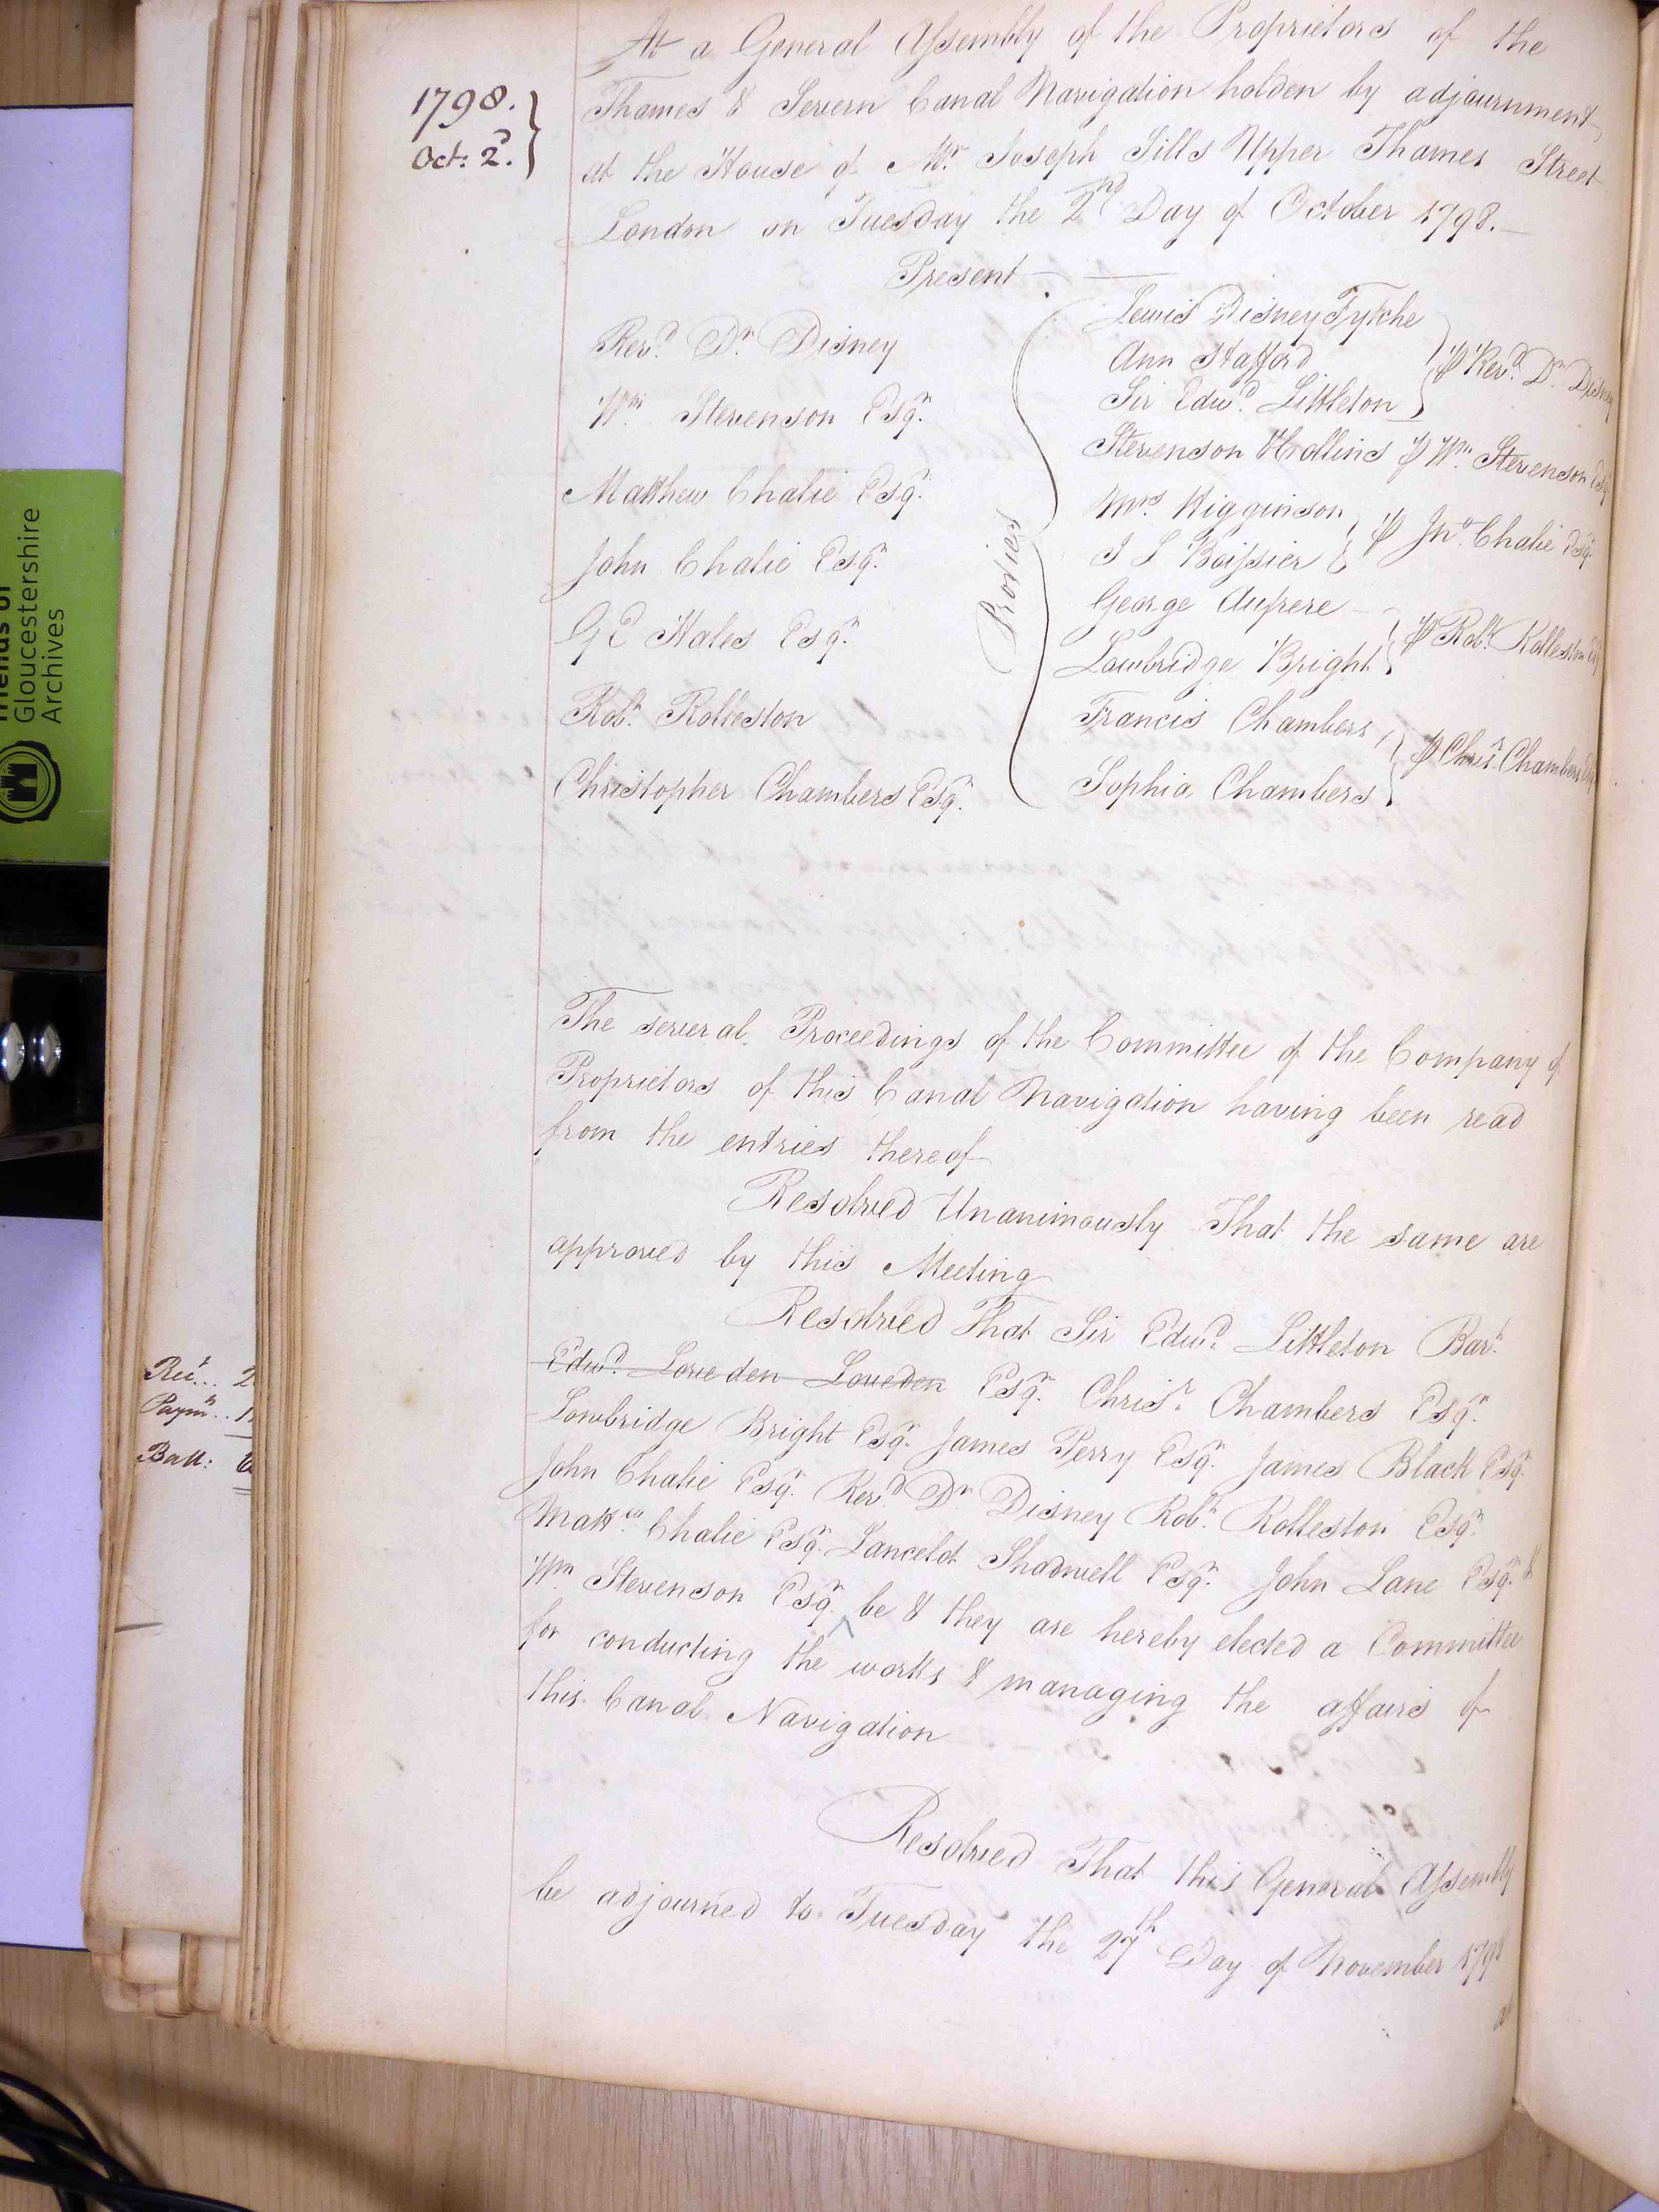 1798.
Oct: 2d.
At a General Assembly of the Proprietors of the
Thames & Severn Canal Navigation holden by adjournment
at the House of Mr. Joseph Sills Upper Thames Street
London on Tuesday the 2nd Day of October 1798.
Present
Revd. Dr. Disney
Wm. Stevenson Esqr.
Matthew Chalie Esqr.
John Chalie Esqr.
Hales Esqr.
Robt. Rolleston
Christopher Chambers Esqr.
Proxies
Lewis Disney Fytche
Ann Stafford
Sir Edwd. Littleton
⅌ Revd. Dr. Disney
Stevenson Hollins ⅌ Wm. Stevenson Esqr.
Mrs. Higginson
J L Boissier
⅌ Jno. Chalie Esqr.
George Aufrere
Lowbridge Bright
⅌ Robt. Rolleston Esqr.
Francis Chambers
Sophia Chambers
⅌ Chrisr. Chambers Esqr.
The several Proceedings of the Committee of the Company of
Proprietors of this Canal Navigation having been read
from the entries thereof
Resolved Unanimously That the same are
approved by this Meeting
Resolved That Sir Edwd. Littleton Bart.
Edwd. Loveden Loveden Esqr. Chrisr. Chambers Esqr.
Lowbridge Bright Esqr. James Perry Esqr. James Black Esqr.
John Chalie Esqr. Revd. Dr. Disney Robt. Rolleston Esqr.
Mattw. Chalie Esqr. Lancelot Shadwell Esqr. John Lane Esqr. &
Wm Stevenson Esqr. be & they are hereby elected a Committee
for conducting the works & managing the affairs of
this Canal Navigation
Resolved That this General Assembly
be adjourned to Tuesday the 27th Day of November 1798
at
Rect... 2
Paymts.. 1
Ball:
Friends of
Gloucestershire
Archives